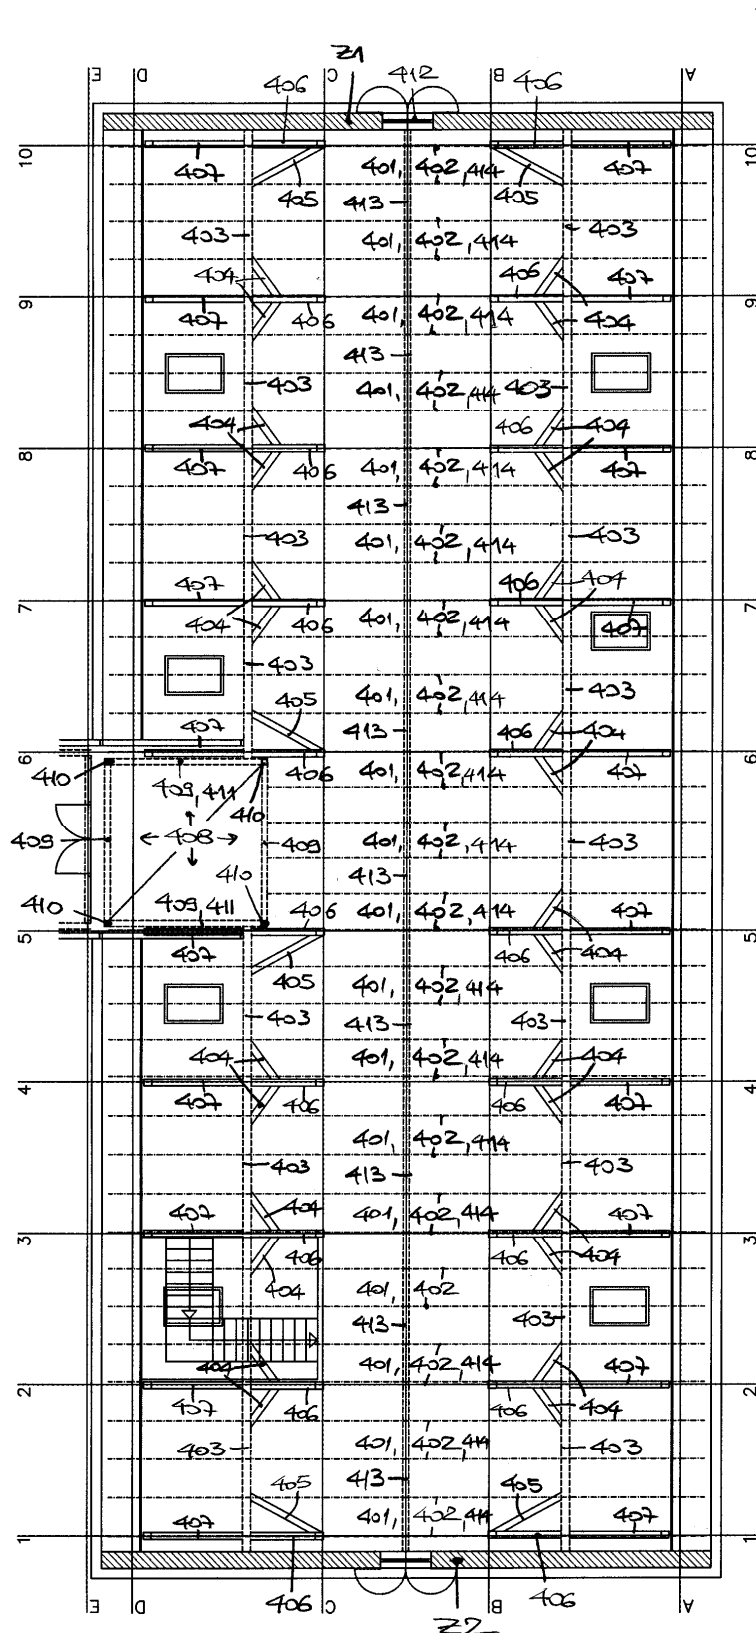 Z1
E D C B A
406 412 406
10 10
407 401, 402, 414 407
405 405
413
403 403
401, 402, 414
404 406 407
9 9
407 406 401, 402, 414 404
413
403 401, 402, 414 403
404 406 404
8 8
407 406 401, 402, 414 407
413
403 401, 402, 414 403
407 406 404
7 7
404 406 401, 402, 414 407
403 401, 402, 414 403
405
407 413 406 404
6 6
410 406 401, 402, 414 407
409, 411 410
409 408 409 401, 402, 414 403
410 413
410 409, 411 406 401, 402, 414 407
5 5
407 406 404
405 401, 402, 414
403 413 403
404 401, 402, 414 404
4 4
407 406 406 407
401, 402, 414
403 413 403
407 404 401, 402, 414 407
3 3
406 406 404
404 401, 402
413 403
404 401, 402, 414 407
2 2
407 406 406 404
403 401, 402, 414 403
405 413 405
407 401, 402, 414 407
1 1
406 406
E D C B A
Z2